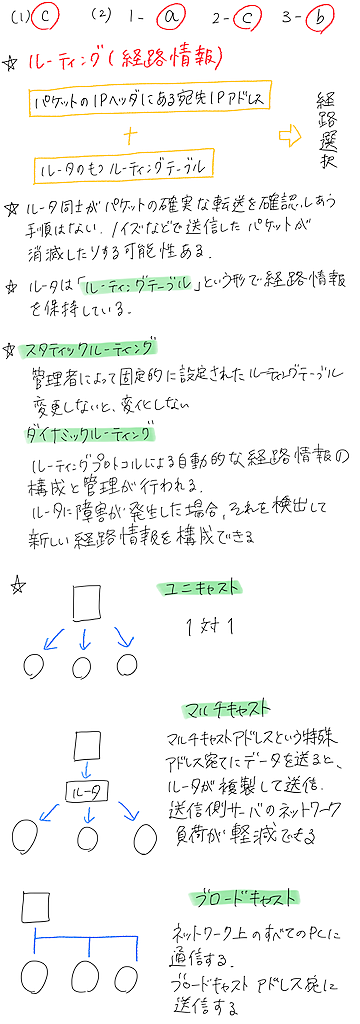 (1) c (2) 1- a 2- c 3- b
☆ ルーティング(経路情報)
パケットのIPヘッダにある宛先IPアドレス
+
ルータのもつルーティングテーブル
経路選択
☆ ルータ同士がパケットの確実な転送を確認しあう
手順はない. ノイズなどで送信したパケットが
消滅したりする可能性ある.
☆ ルータは「ルーティングテーブル」という形で経路情報
を保持している.
☆ スタティックルーティング
管理者によって固定的に設定されたルーティングテーブル
変更しないと、変化しない
ダイナミックルーティング
ルーティングプロトコルによる自動的な経路情報の
構成と管理が行われる.
ルータに障害が発生した場合, それを検出して
新しい経路情報を構成できる
☆
ユニキャスト
1対1
マルチキャスト
マルチキャストアドレスという特殊
アドレス宛てにデータを送ると、
ルータが複製して送信.
送信側サーバのネットワーク
負荷が軽減できる
ルータ
ブロードキャスト
ネットワーク上のすべてのPCに
通信する.
ブロードキャストアドレス宛に
送信する